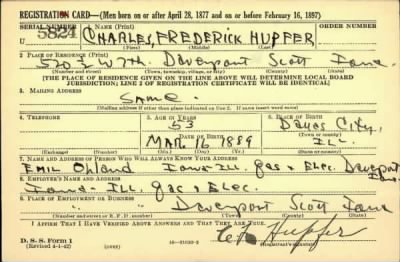 REGISTRATION CARD—(Men born on or after April 28, 1877 and on or before February 16, 1897)
SERIAL NUMBER 1. NAME (Print) ORDER NUMBER
U 5824 CHARLES FREDERICK HUPFER
(First) (Middle) (Last)
2. PLACE OF RESIDENCE (Print)
520 ½ W 7th. Davenport Scott Iowa
(Number and street) (Town, township, village, or city) (County) (State)
[THE PLACE OF RESIDENCE GIVEN ON THE LINE ABOVE WILL DETERMINE LOCAL BOARD
JURISDICTION; LINE 2 OF REGISTRATION CERTIFICATE WILL BE IDENTICAL]
3. MAILING ADDRESS
Same
[Mailing address if other than place indicated on line 2. If same insert word same]
4. TELEPHONE 5. AGE IN YEARS 6. PLACE OF BIRTH
53
DATE OF BIRTH (Town or county)
Mar. 16 1889 Ill.
(Exchange) (Number) (Mo.) (Day) (Yr.) (State or country)
7. NAME AND ADDRESS OF PERSON WHO WILL ALWAYS KNOW YOUR ADDRESS
Emil Ohland Iowa-Ill. Gas & Elec. Davenport Iowa
8. EMPLOYER'S NAME AND ADDRESS
Iowa-Ill. Gas & Elec.
9. PLACE OF EMPLOYMENT OR BUSINESS
Davenport Scott Iowa
(Number and street or R. F. D. number) (Town) (County) (State)
I AFFIRM THAT I HAVE VERIFIED ABOVE ANSWERS AND THAT THEY ARE TRUE.
D. S. S. Form 1
(Revised 4-1-42) (over) Hupfer
(Registrant's signature)